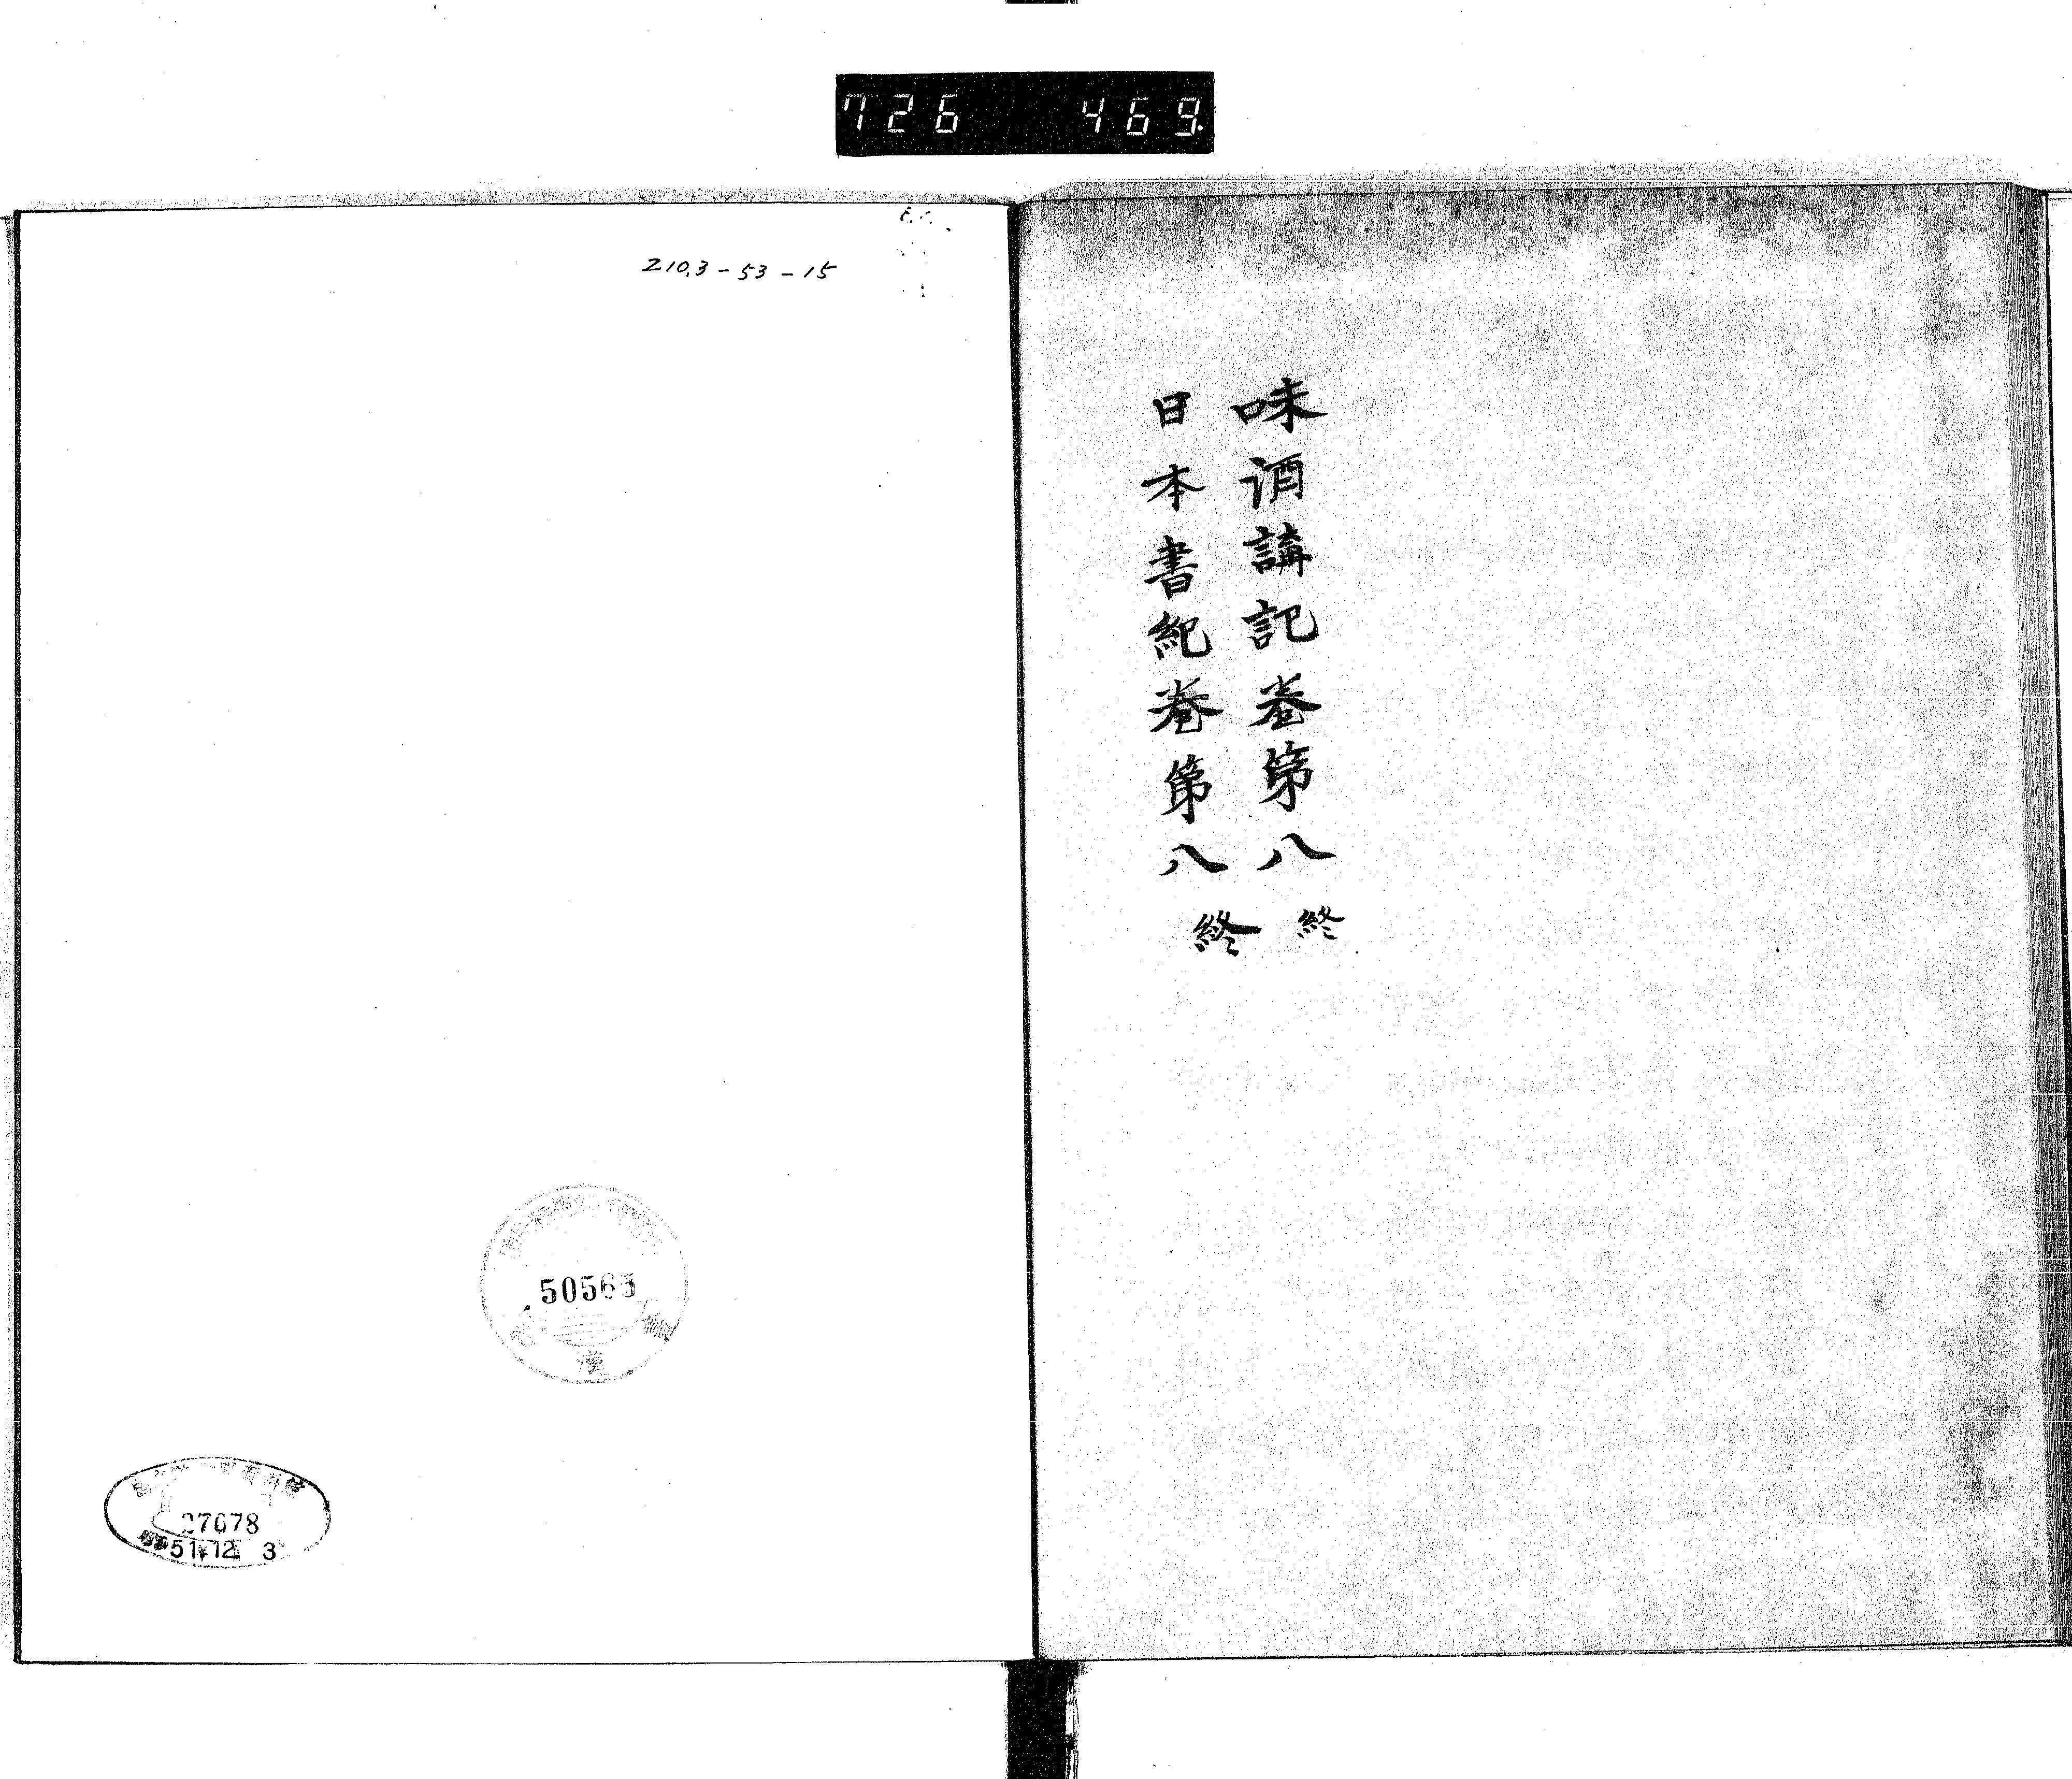 726 469.
味酒講記巻第八 終
日本書紀巻第八 終
210.3-53-15
50563
漢
27678
51.12. 3